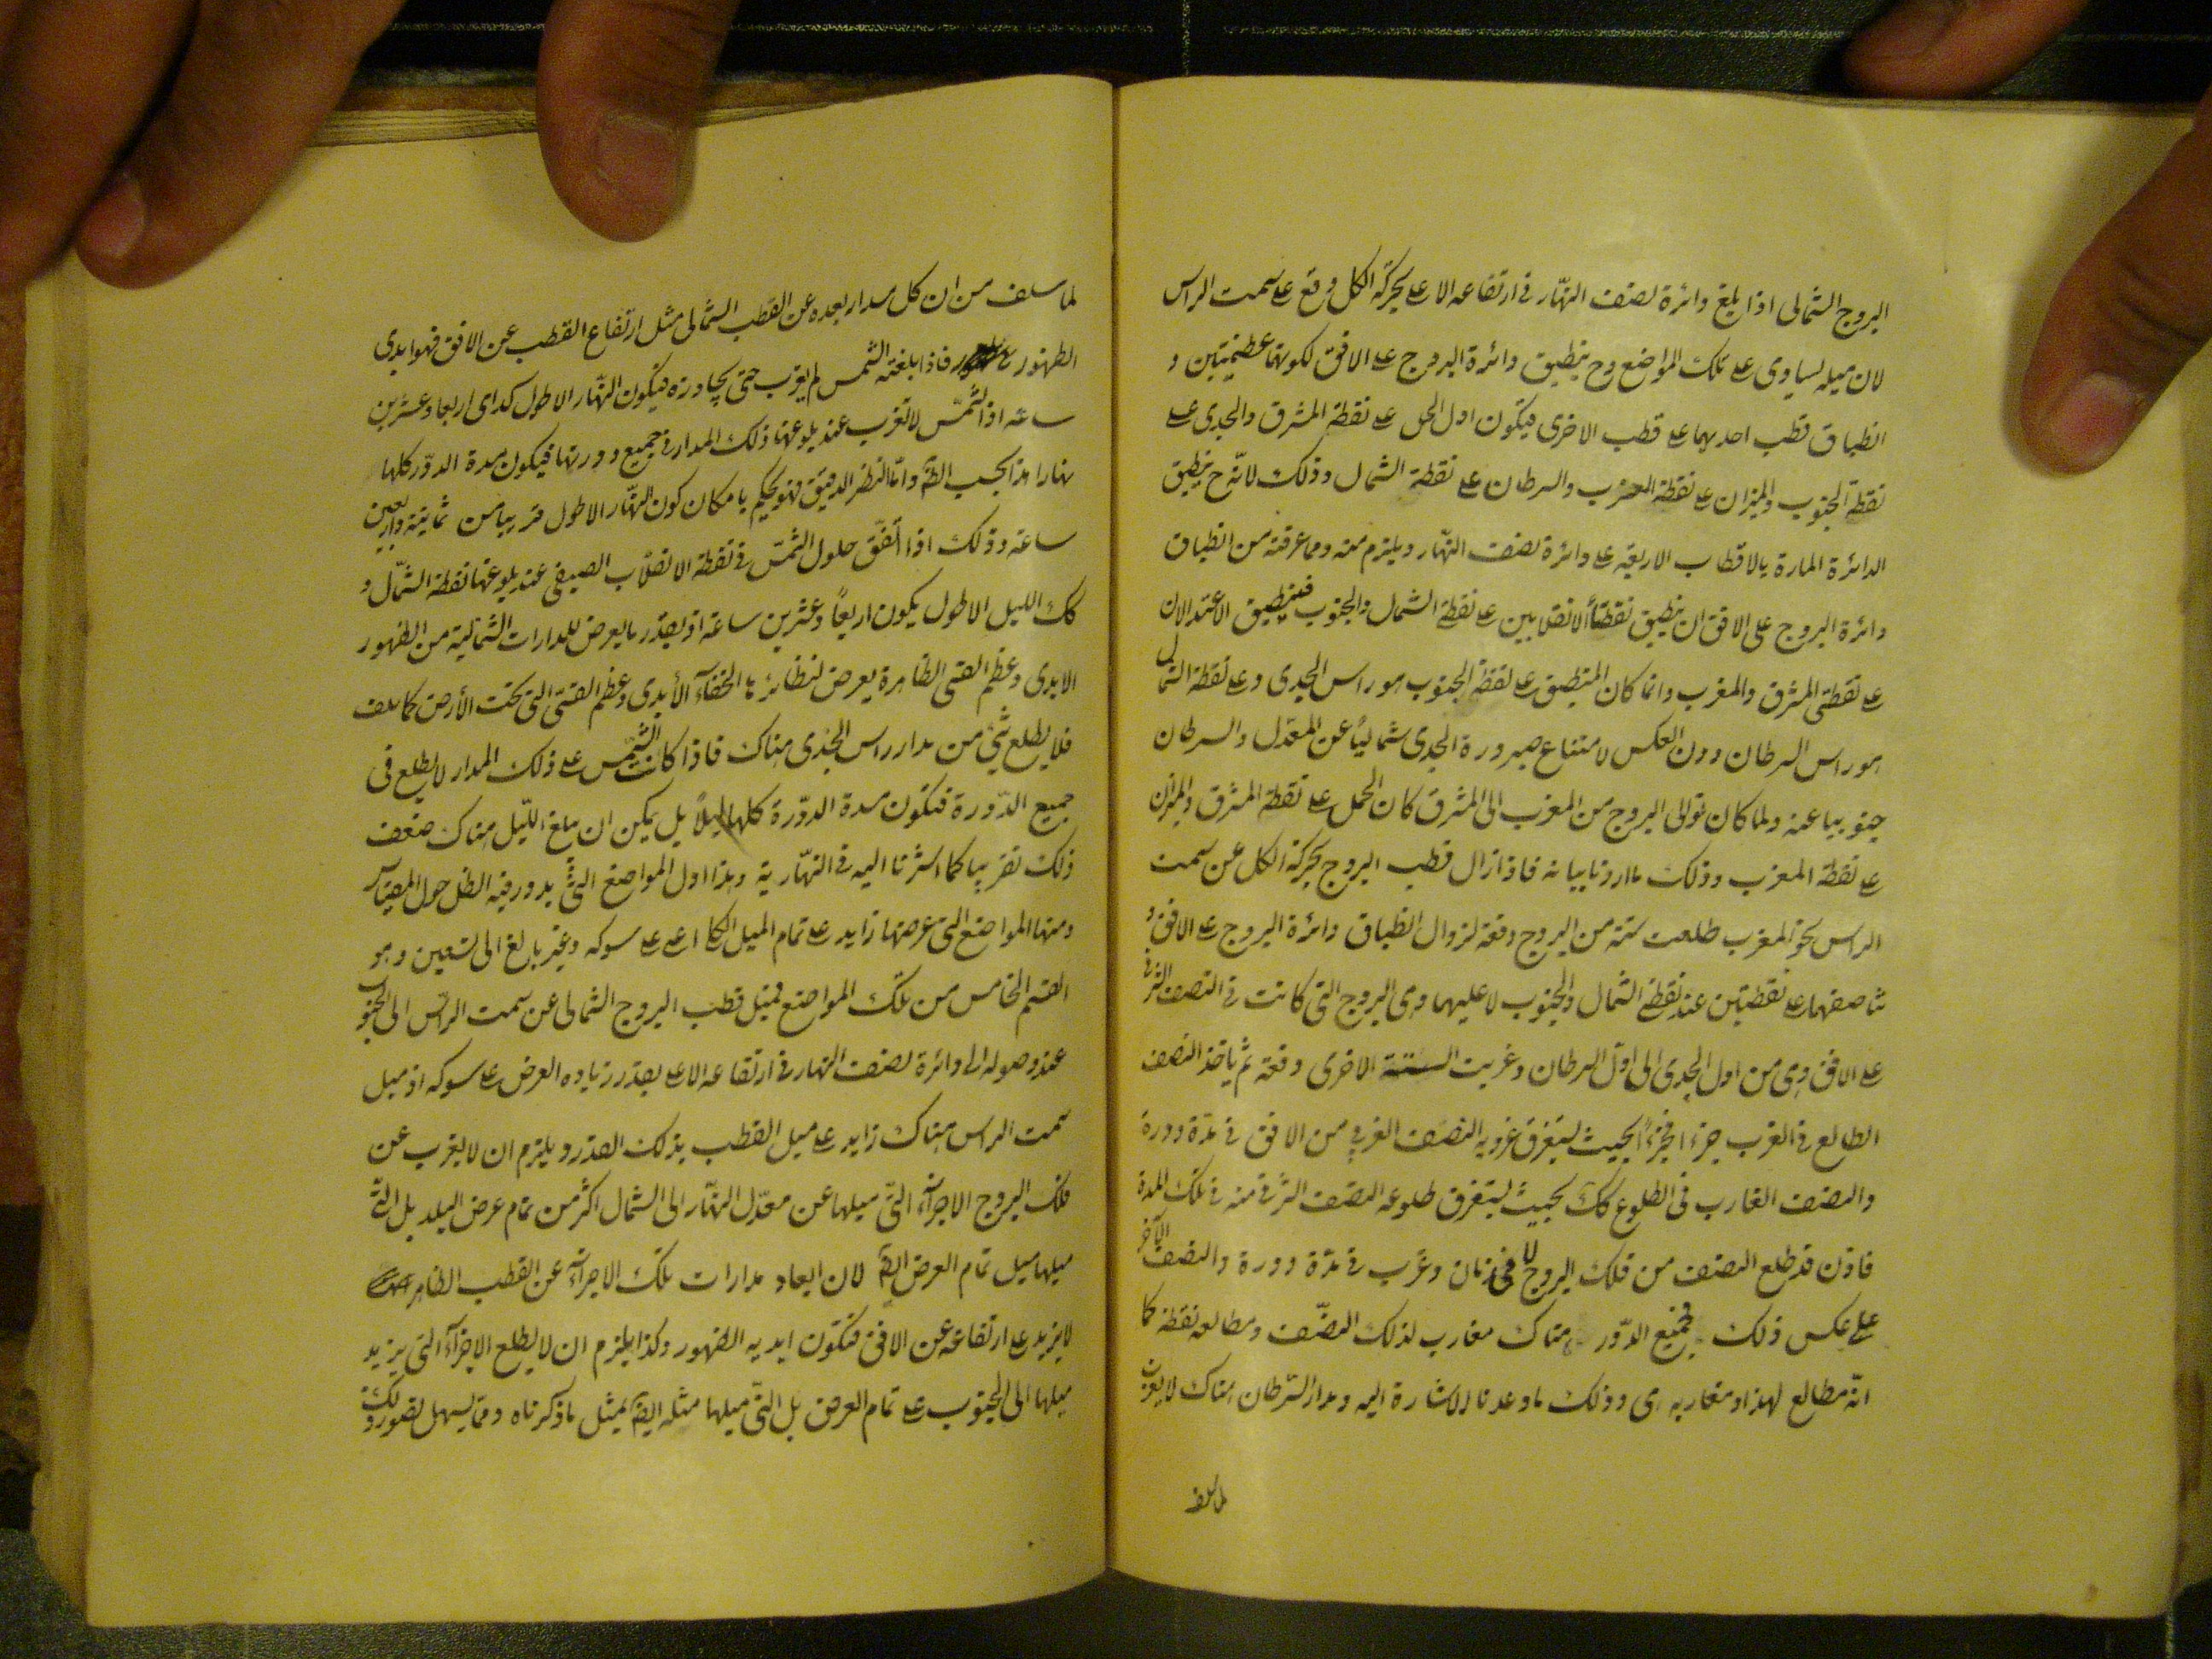 البروج الشمالى اذا بلغ دائرة نصف النهّار فى ارتفاعه الاعلى بحركة الكل وقع على سمت الراس
لان ميله يساوى على تلك المواضع وح ينطبق دائرة البروج على الافق لكونهما عظيمتين و
انطباق قطب احديهما على قطب الاخرى فيكون اول الحمل على نقطة المشرق والجدى على
نقطة الجنوب والميزان على نقطة المغرب والسرطان على نقطة الشمال وذلك لانّه ح ينطبق
الدائرة المارة بالاقطاب الاربعة على دائرة نصف النهّار ويلزم منه ومما عرفته من انطباق
دائرة البروج على الافق ان ينطبق نقطتا الانقلابين على نقطة الشمال والجنوب فينطبق الاعتدالان
على نقطتى المشرق والمغرب وانما كان المنطبق على نقطة الجنوب هو راس الجدى وعلى نقطة الشمال
هو راس السرطان دون العكس لامتناع صيرورة الجدى شماليًا عن المعدّل والسرطان
جنوبيا عنه ولما كان توالى البروج من المغرب الى المشرق كان الحمل على نقطة المشرق والميزان
على نقطة المغرب وذلك ما اردنا بيانه فاذا زال قطب البروج بحركة الكل عن سمت
الراس نحو المغرب طلعت ستة من البروج دفعة لزوال انطباق دائرة البروج على الافق و
تناصفهما على نقطتين عند نقطة الشمال والجنوب لا عليهما وهى البروج التى كانت فى النصف الشرقى
على الافق وهى من اول الجدى الى اوّل السرطان وغربت الستة الاخرى دفعة ثم ياخذ النصف
الطالع فى الغرب جزءا فجزءا بحيث يستغرق غروبه النصف الغربى من الافق فى مدّة دورة
والنصف الغارب فى الطلوع كك بحيث يستغرق طلوعه النصف الشرقى منه فى تلك المدة
فاذن قد طلع النصف من فلك البروج لا فى زمان وغرب فى مدّة دورة والنصف الآخر
على عكس ذلك فجميع الدّور هناك مغارب لذلك النصّف ومطالعه نقطة كما
انّه مطالع لهذا ومغاربه هى وذلك ما وعدنا الاشارة اليه ومدار السّرطان هناك لا يغرب
لما سلف
لما سلف من ان كل مدار بعده عن القطب الشمالى مثل ارتفاع القطب عن الافق فهو ابدى
الظهور فاذا بلغته الشمس لم يغرب حتى يجاوزه فيكون النهّار الاطول كداى اربعا وعشرين
ساعه اذ الشمس لا تغرب عند بلوغها ذلك المدار فى جميع دورتها فيكون مدة الدوّر كلها
نهارا هذا بحسب الظ وامّا النظر الدقيق فهو يحكم بامكان كون النهّار الاطول قريبا من ثمانية واربعين
ساعة وذلك اذا اتفّق حلول الشمسّ فى نقطة الانقلاب الصيفى عند بلوغها نقطة الشمّال و
كك الليل الاطول يكون اربعاً وعشرين ساعة اذ بقدر ما يعرض للمدارات الشمالية من الظهور
الابدى وعظم القسى الظاهرة يعرض لنظائرها الخفآء الأبدى وعظم القسىّ التى تحت الأرض كما سلف
فلا يطلع شئ من مدار راس الجدى هناك فاذا كانت الشمس على ذلك المدار لا يطلع فى
جميع الدّورة فتكون مدة الدوّرة كلها ليلاً بل يمكن ان يبلغ اللّيل هناك ضعف
ذلك تقريبا كما اشرنا اليه فى النهّارية وهذا اول المواضع التى يدور فيه الظل حول المقياس
ومنها المواضع التى عرضها زايد على تمام الميل الكلى اعى على سوكه وغير بالغ الى تسعين وهو
القسم الخامس من تلك المواضع فميل قطب البروج الشمالى عن سمت الراّس الى الجنوب
عند وصوله الى دائرة نصف النهار فى ارتفاعه الاعلى بقدر زياده العرض على سوكه اذ ميل
سمت الراس هناك زايد على ميل القطب بذلك القدر ويلزم ان لا يغرب عن
فلك البروج الاجزآء التّى ميلها عن معدّل النهّار الى الشمال اكثر من تمام عرض البلد بل التى
ميلها مثل تمام العرض ايضا لان ابعاد مدارات تلك الاجزآء عن القطب الظاهر
لا يزيد على ارتفاعه عن الافق فتكون ابديه الظهور وكذا يلزم ان لا يطلع الاجزآء التى يزيد
ميلها الى الجنوب على تمام العرض بل التىّ ميلها مثله ايضا بمثل ما ذكرناه وممّا يسهل تصور ذلك